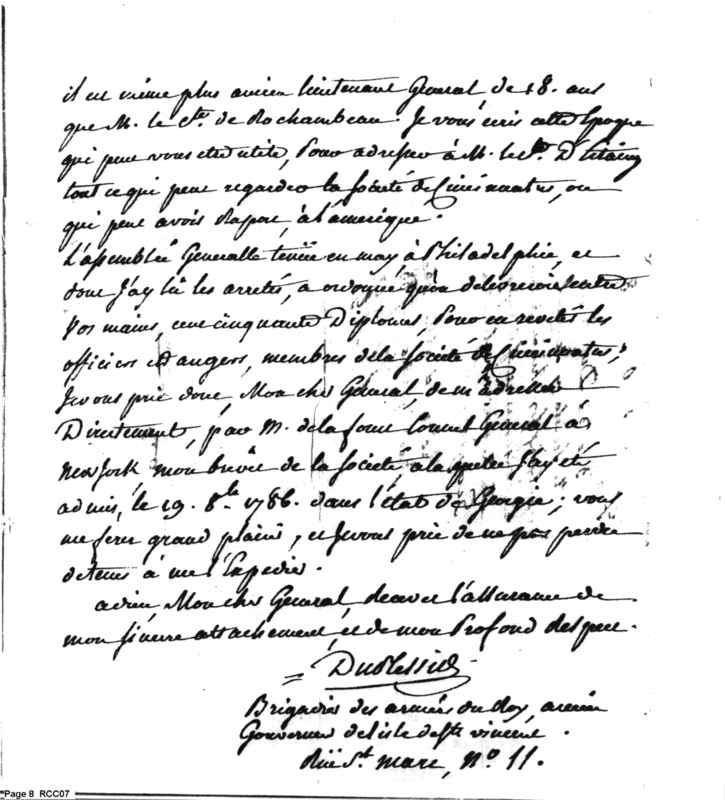 il est même plus ancien lieutenant General de 18. ans
que M. le Cte. de Rochambeau. Je vous écris cette Epoque
qui peut vous etre utile, Pour adresser à M. le Cte. D'Estaing
tout ce qui peut regarder la Société de Cincinnatus, ou
qui peut avoir raport, à l'amerique.
L'assemblée Generalle tenüe en may, à Philadelphie, et
dont j'ay lû les arretés, a ordonné qu'on delivreroit entre
Vos mains, cent cinquante Diplomes, Pour en revetir les
officiers Etrangers, membres de la Société de Cincinnatus;
Je vous prie donc, Mon cher General, de m'adresser
Directement, par M. de la foret Consul General à
New york mon brevet de la Société, a laquelle j'ay été
admis, le 19. 8.bre 1786. dans l'état de Georgie; vous
me ferez grand plaisir, et je vous prie de ne pas perdre
de tems à me l'Expedier.
adieu, Mon cher General, recevez l'assurance de
mon sincere attachement, et de mon Profond Respect.
DuPlessis
Brigadier des armées du Roy, ancien
Gouverneur de l'isle de St. vincent.
Rüe St. marc, No. 11.
Page 8 RCC07